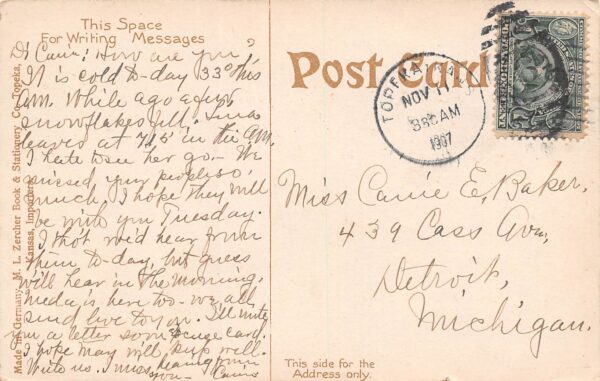 This Space
For Writing Messages
Dr Carrie: How are you?
It is cold to-day 33° this
A.M. While ago a few
snowflakes fell.
leaves at 7:15 in the A.M.
I hate to see her go - We
missed your people so
much, I hope they will
be with you Tuesday.
I thot we'd hear from
them to-day, but guess
will hear in the morning.
Meda is here too - we all
send love to you. I'll write
you a letter soon 'scuse card.
I hope May will keep well.
Write us. I miss hearing from
you -
Made in Germany, M. L. Zercher Book & Stationery Co. Topeka,
Kansas, Importers
Post Card
TOPEKA
NOV 11
AM
1907
Miss Carrie E. Baker,
439 Cass Ave,
Detroit,
Michigan.
This side for the
Address only.